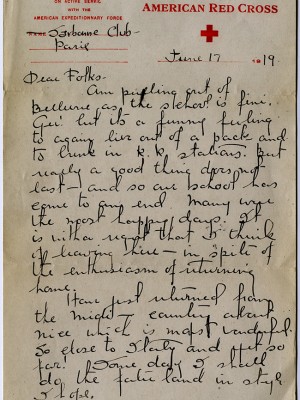 ON ACTIVE SERVICE
WITH THE
AMERICAN EXPEDITIONARY FORCE
AMERICAN RED CROSS
Sorbonne Club-
Paris
June 17 1919.
Dear Folks-
Am pulling out of
Bellevue, as the school is fini.
Gee but its a funny feeling
to again live out of a pack and
to bunk in R.R. stations. But
really a good thing does not
last - and so our school has
come to any end. Many were
the most happy days. It
is with a regret that I think
of leaving here - in spite of
the enthusiasm of returning
home.
Have just returned from
the country about
nice which is most wonderful.
So close to Italy and yet so
far! Some day I shall
do the land in style
I hope.